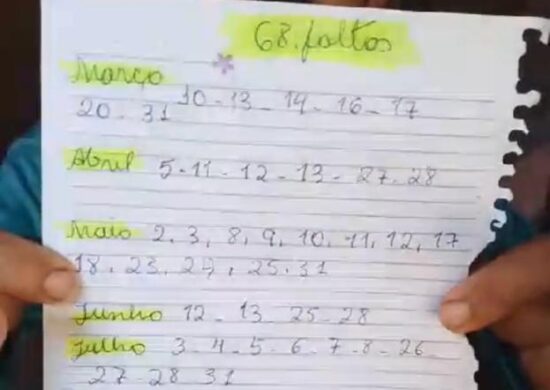 68. faltas
Março
10 - 13 - 14 - 16 - 17
20 - 31
Abril 5 - 11 - 12 - 13 - 27 - 28
Maio 2, 3, 8, 9, 10, 11, 12, 17
18, 23, 24, 25, 31
Junho 12 - 13 25 - 28
Julho 3 - 4 - 5 - 6 - 7 - 8 - 26
27 - 28 31